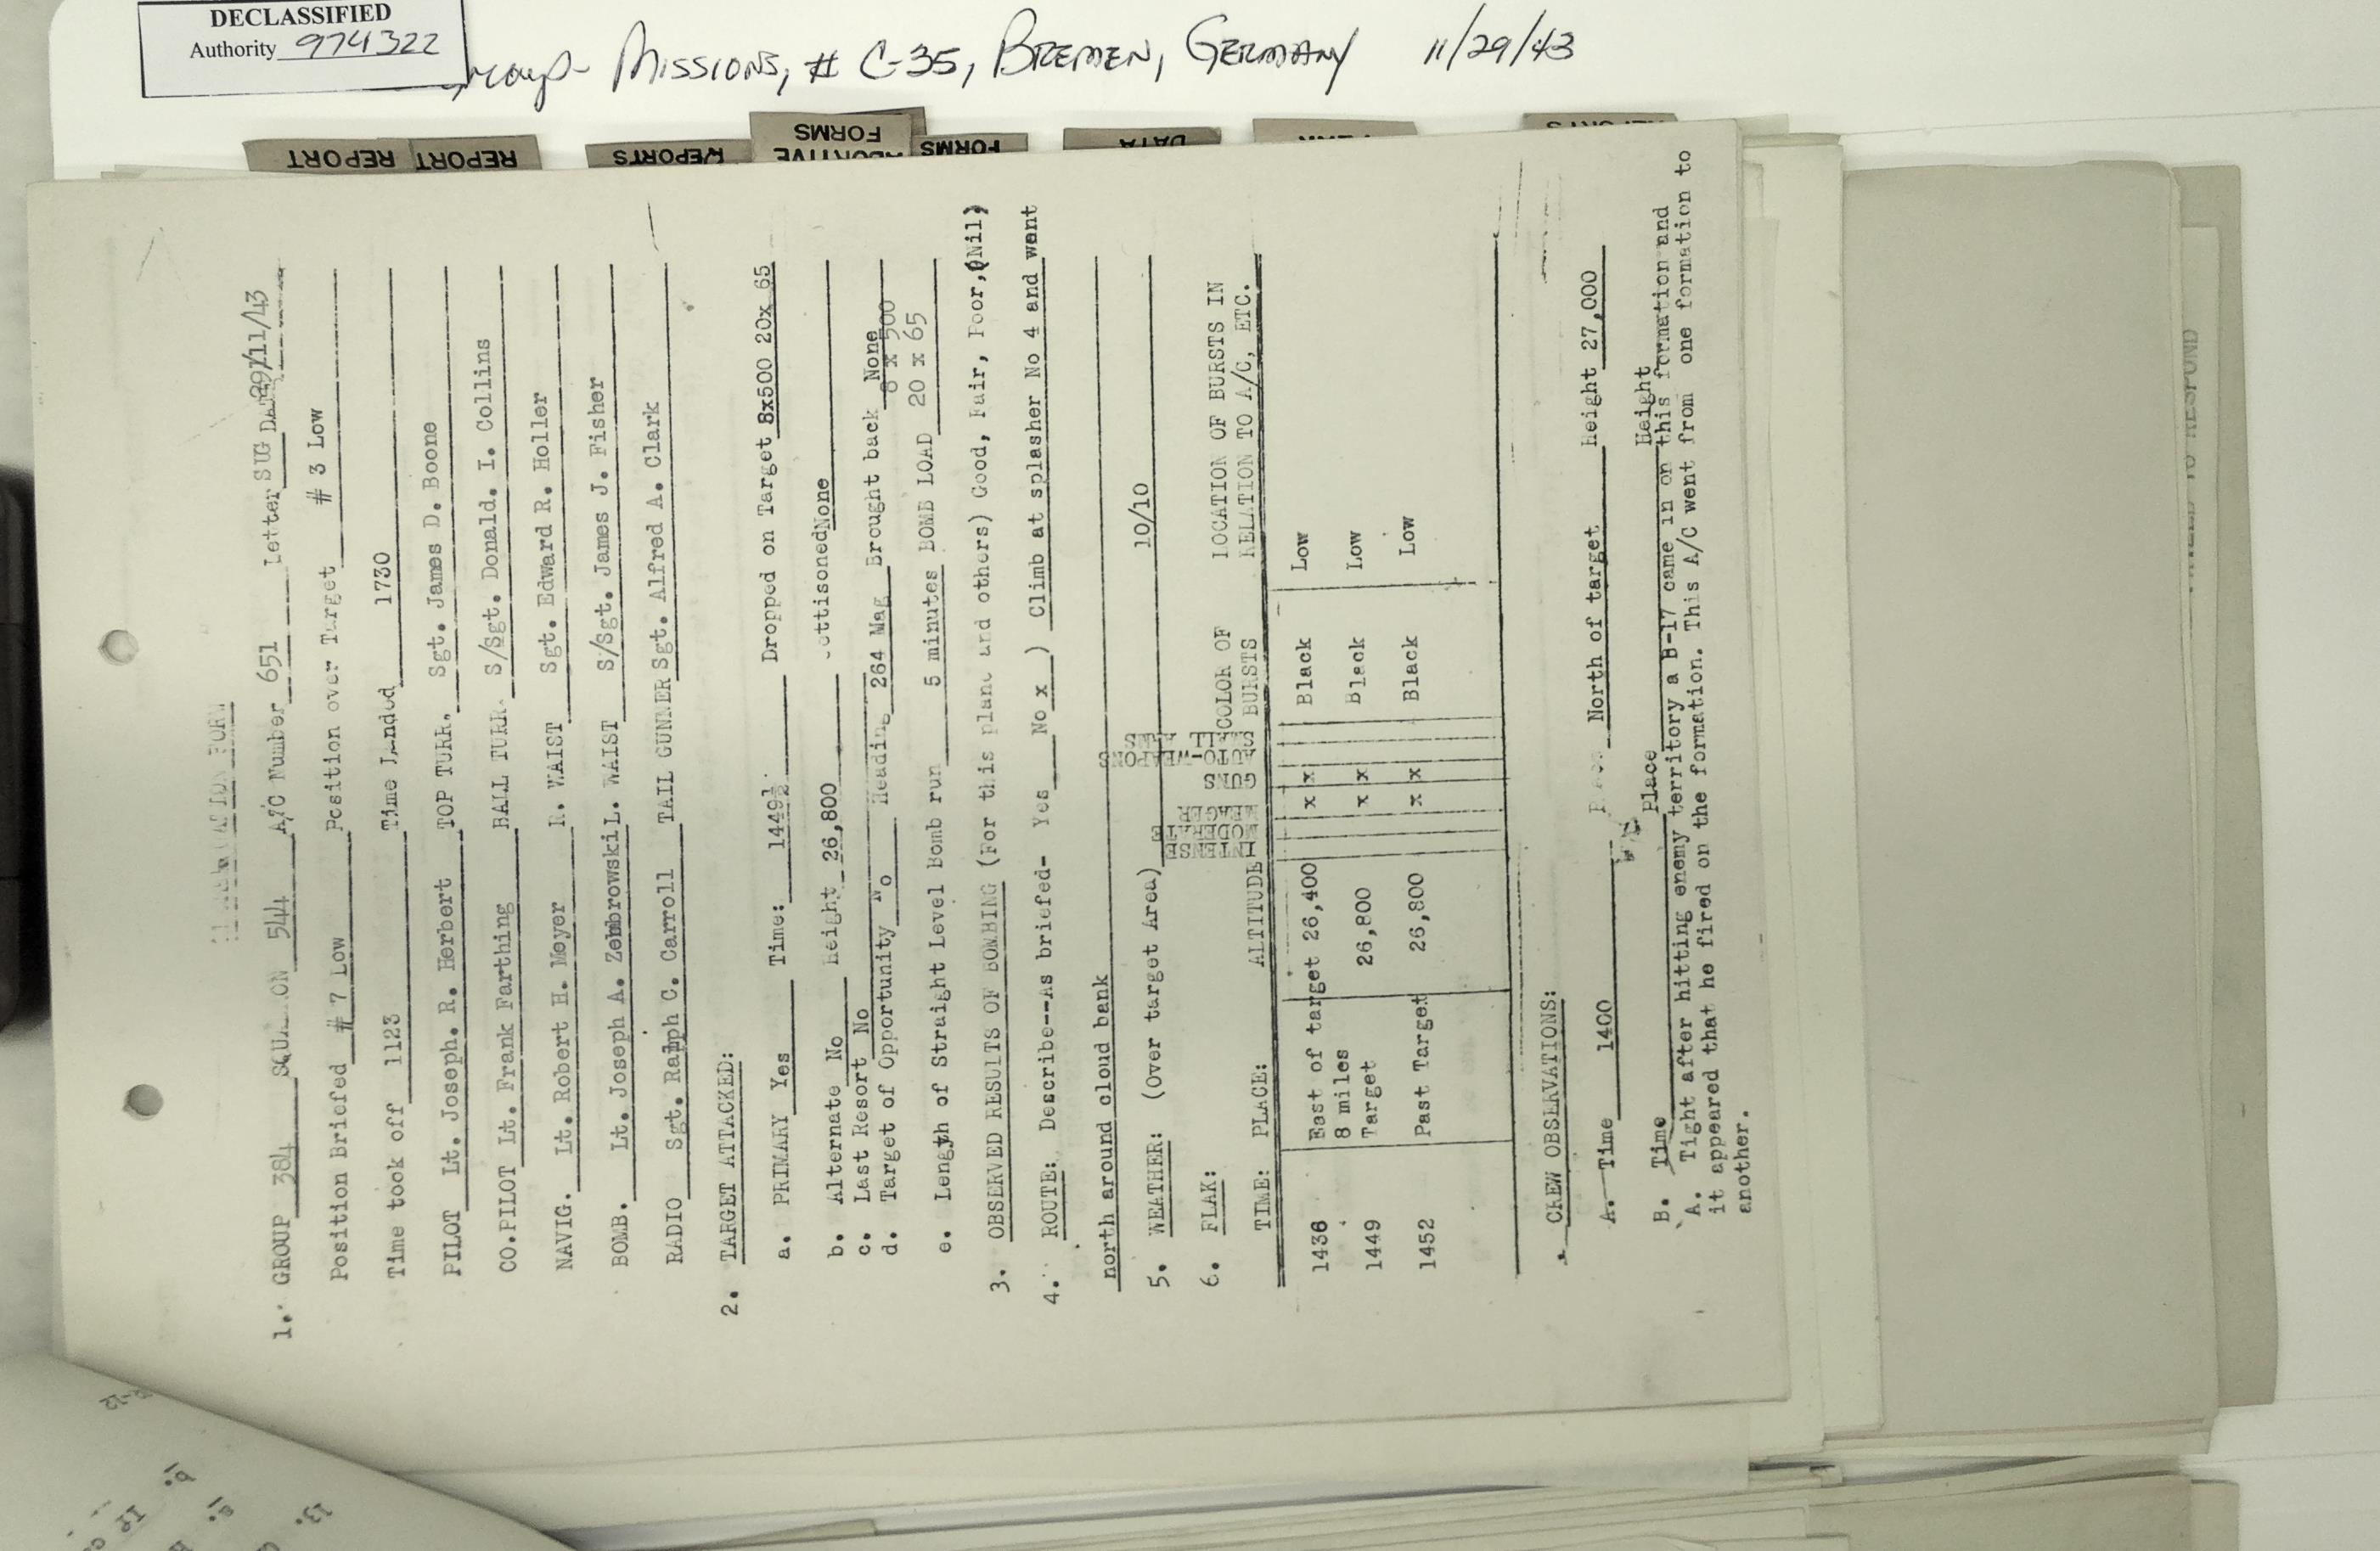 DECLASSIFIED
Authority 974322
Missions, # C-35, Bremen, Germany 11/29/43
REPORT
REPORT
REPORTS
ABORTIVE
FORMS
FORMS
DATA
REPORTS
1. GROUP 384 SQUADRON 544 A/C Number 651 Letter SUG DATE 29/11/43
Position Briefed # 7 Low Position over Target # 3 Low
Time took off 1123 Time Landed 1730
PILOT Lt. Joseph. R. Herbert TOP TURR. Sgt. James D. Boone
CO.PILOT Lt. Frank Farthing BALL TURR. S/Sgt. Donald. I. Collins
NAVIG. Lt. Robert H. Meyer R. WAIST Sgt. Edward R. Holler
BOMB. Lt. Joseph A. Zembrowski L. WAIST S/Sgt. James J. Fisher
RADIO Sgt. Ralph C. Carroll TAIL GUNNER Sgt. Alfred A. Clark
2. TARGET ATTACKED:
a. PRIMARY Yes Time: 1449½ Dropped on Target 8x500 20x 65
b. Alternate No Height 26,800 Jettisoned None
c. Last Resort No
d. Target of Opportunity No Heading 264 Mag Brought back None
8 x 500
e. Length of Straight Level Bomb run 5 minutes BOMB LOAD 20 x 65
3. OBSERVED RESULTS OF BOMBING (For this plane and others) Good, Fair, Poor, (Nil)
4. ROUTE: Describe--As briefed- Yes No x ) Climb at splasher No 4 and went
north around cloud bank
5. WEATHER: (Over target Area) 10/10
6. FLAK:
TIME: PLACE: ALTITUDE INTENSE MODERATE MEAGER GUNS AUTO-WEAPONS SMALL ARMS COLOR OF BURSTS LOCATION OF BURSTS IN RELATION TO A/C, ETC.
1436 East of target 26,400 x x Black Low
8 miles
1449 Target 26,800 x x Black Low
1452 Past Target 26,800 x x Black Low
CREW OBSERVATIONS:
A. Time 1400 Place North of target Height 27,000
B. Time Place Height
A. Tight after hitting enemy territory a B-17 came in on this formation and
it appeared that he fired on the formation. This A/C went from one formation to
another.
13.